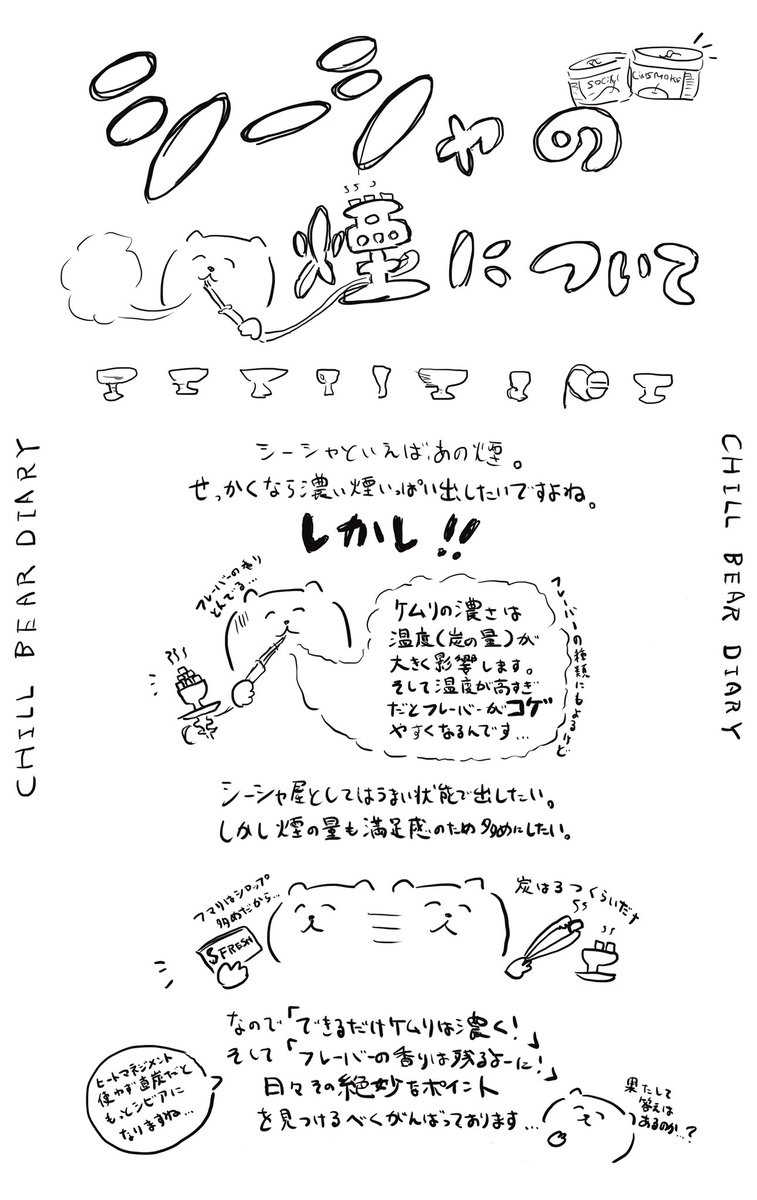 シーシャの
SOCIAL
煙について
CHILL BEAR DIARY
CHILL BEAR DIARY
シーシャといえばあの煙。
せっかくなら濃い煙いっぱい出したいですよね。
しかし!!
フレーバーの香り
とんでる…
ケムリの濃さは
温度(炭の量)が
大きく影響します。
そして温度が高すぎ
だとフレーバーがコゲ
やすくなるんです…
フレーバーの種類にもよるけど
シーシャ屋としてはうまい状態で出したい。
しかし煙の量も満足感のため多めにしたい。
フマリはシロップ
多めだから…
FRESH
炭は3つくらいだナ
なので「できるだけケムリは濃く!」
そして「フレーバーの香りは残るよーに!」
日々その絶妙なポイント
を見つけるべくがんばっております…
ヒートマネジメント
使わず直炭だと
もっとシビアに
なりますね…
果たして
答えは
あるのか…?